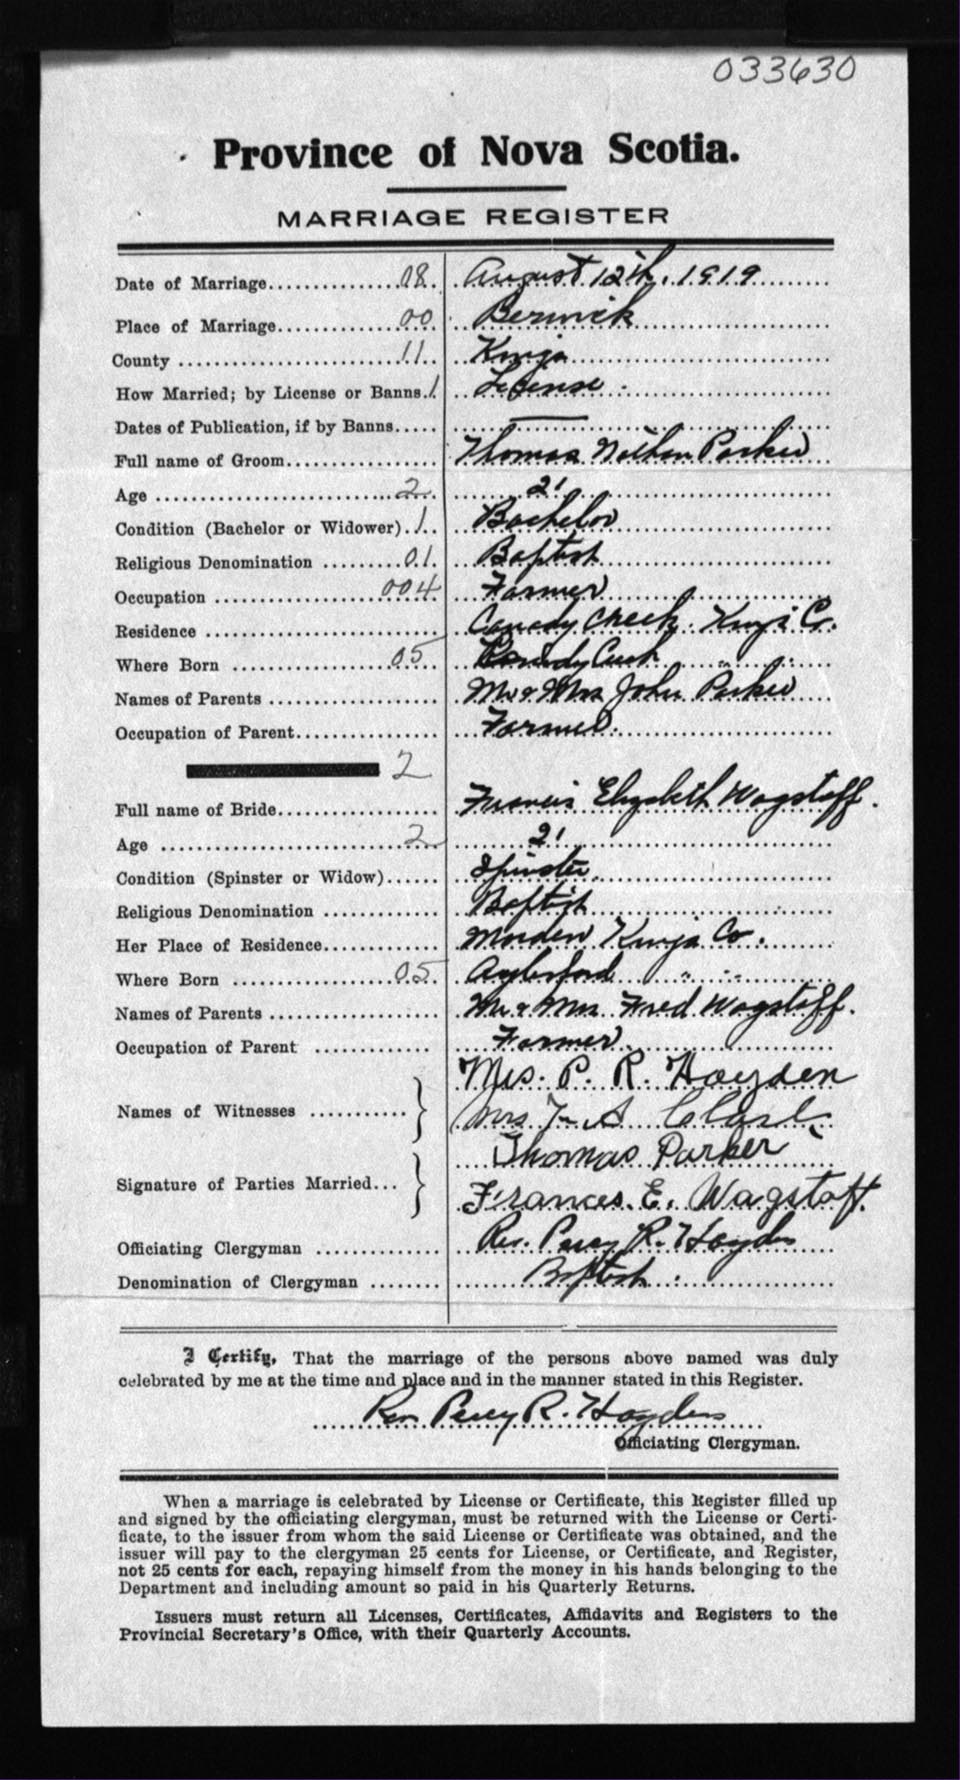 033630
Province of Nova Scotia.
MARRIAGE REGISTER
Date of Marriage 08 August 12th, 1919
Place of Marriage 00 Berwick
County 11 Kings
How Married; by License or Banns 1 License
Dates of Publication, if by Banns —
Full name of Groom Thomas Nathan Parker
Age 2 21
Condition (Bachelor or Widower) 1 Bachelor
Religious Denomination 01 Baptist
Occupation 004 Farmer
Residence Canady Creek Kings Co.
Where Born 05 Canady Creek " "
Names of Parents Mr & Mrs John Parker
Occupation of Parent Farmer.
2
Full name of Bride Francis Elizabeth Wagstaff.
Age 2 21
Condition (Spinster or Widow) Spinster.
Religious Denomination Baptist
Her Place of Residence Morden Kings Co.
Where Born 05 Aylesford " "
Names of Parents Mr & Mrs Fred Wagstaff.
Occupation of Parent Farmer.
Mrs. P. R. Hayden
Names of Witnesses
Mrs A Clark
Thomas Parker
Signature of Parties Married...
Frances. E. Wagstaff.
Officiating Clergyman Rev. Percy R. Hayden
Denomination of Clergyman Baptist.
I Certify, That the marriage of the persons above named was duly
celebrated by me at the time and place and in the manner stated in this Register.
Rev Percy R. Hayden
Officiating Clergyman.
When a marriage is celebrated by License or Certificate, this Register filled up
and signed by the officiating clergyman, must be returned with the License or Certi-
ficate, to the issuer from whom the said License or Certificate was obtained, and the
issuer will pay to the clergyman 25 cents for License, or Certificate, and Register,
not 25 cents for each, repaying himself from the money in his hands belonging to the
Department and including amount so paid in his Quarterly Returns.
Issuers must return all Licenses, Certificates, Affidavits and Registers to the
Provincial Secretary's Office, with their Quarterly Accounts.